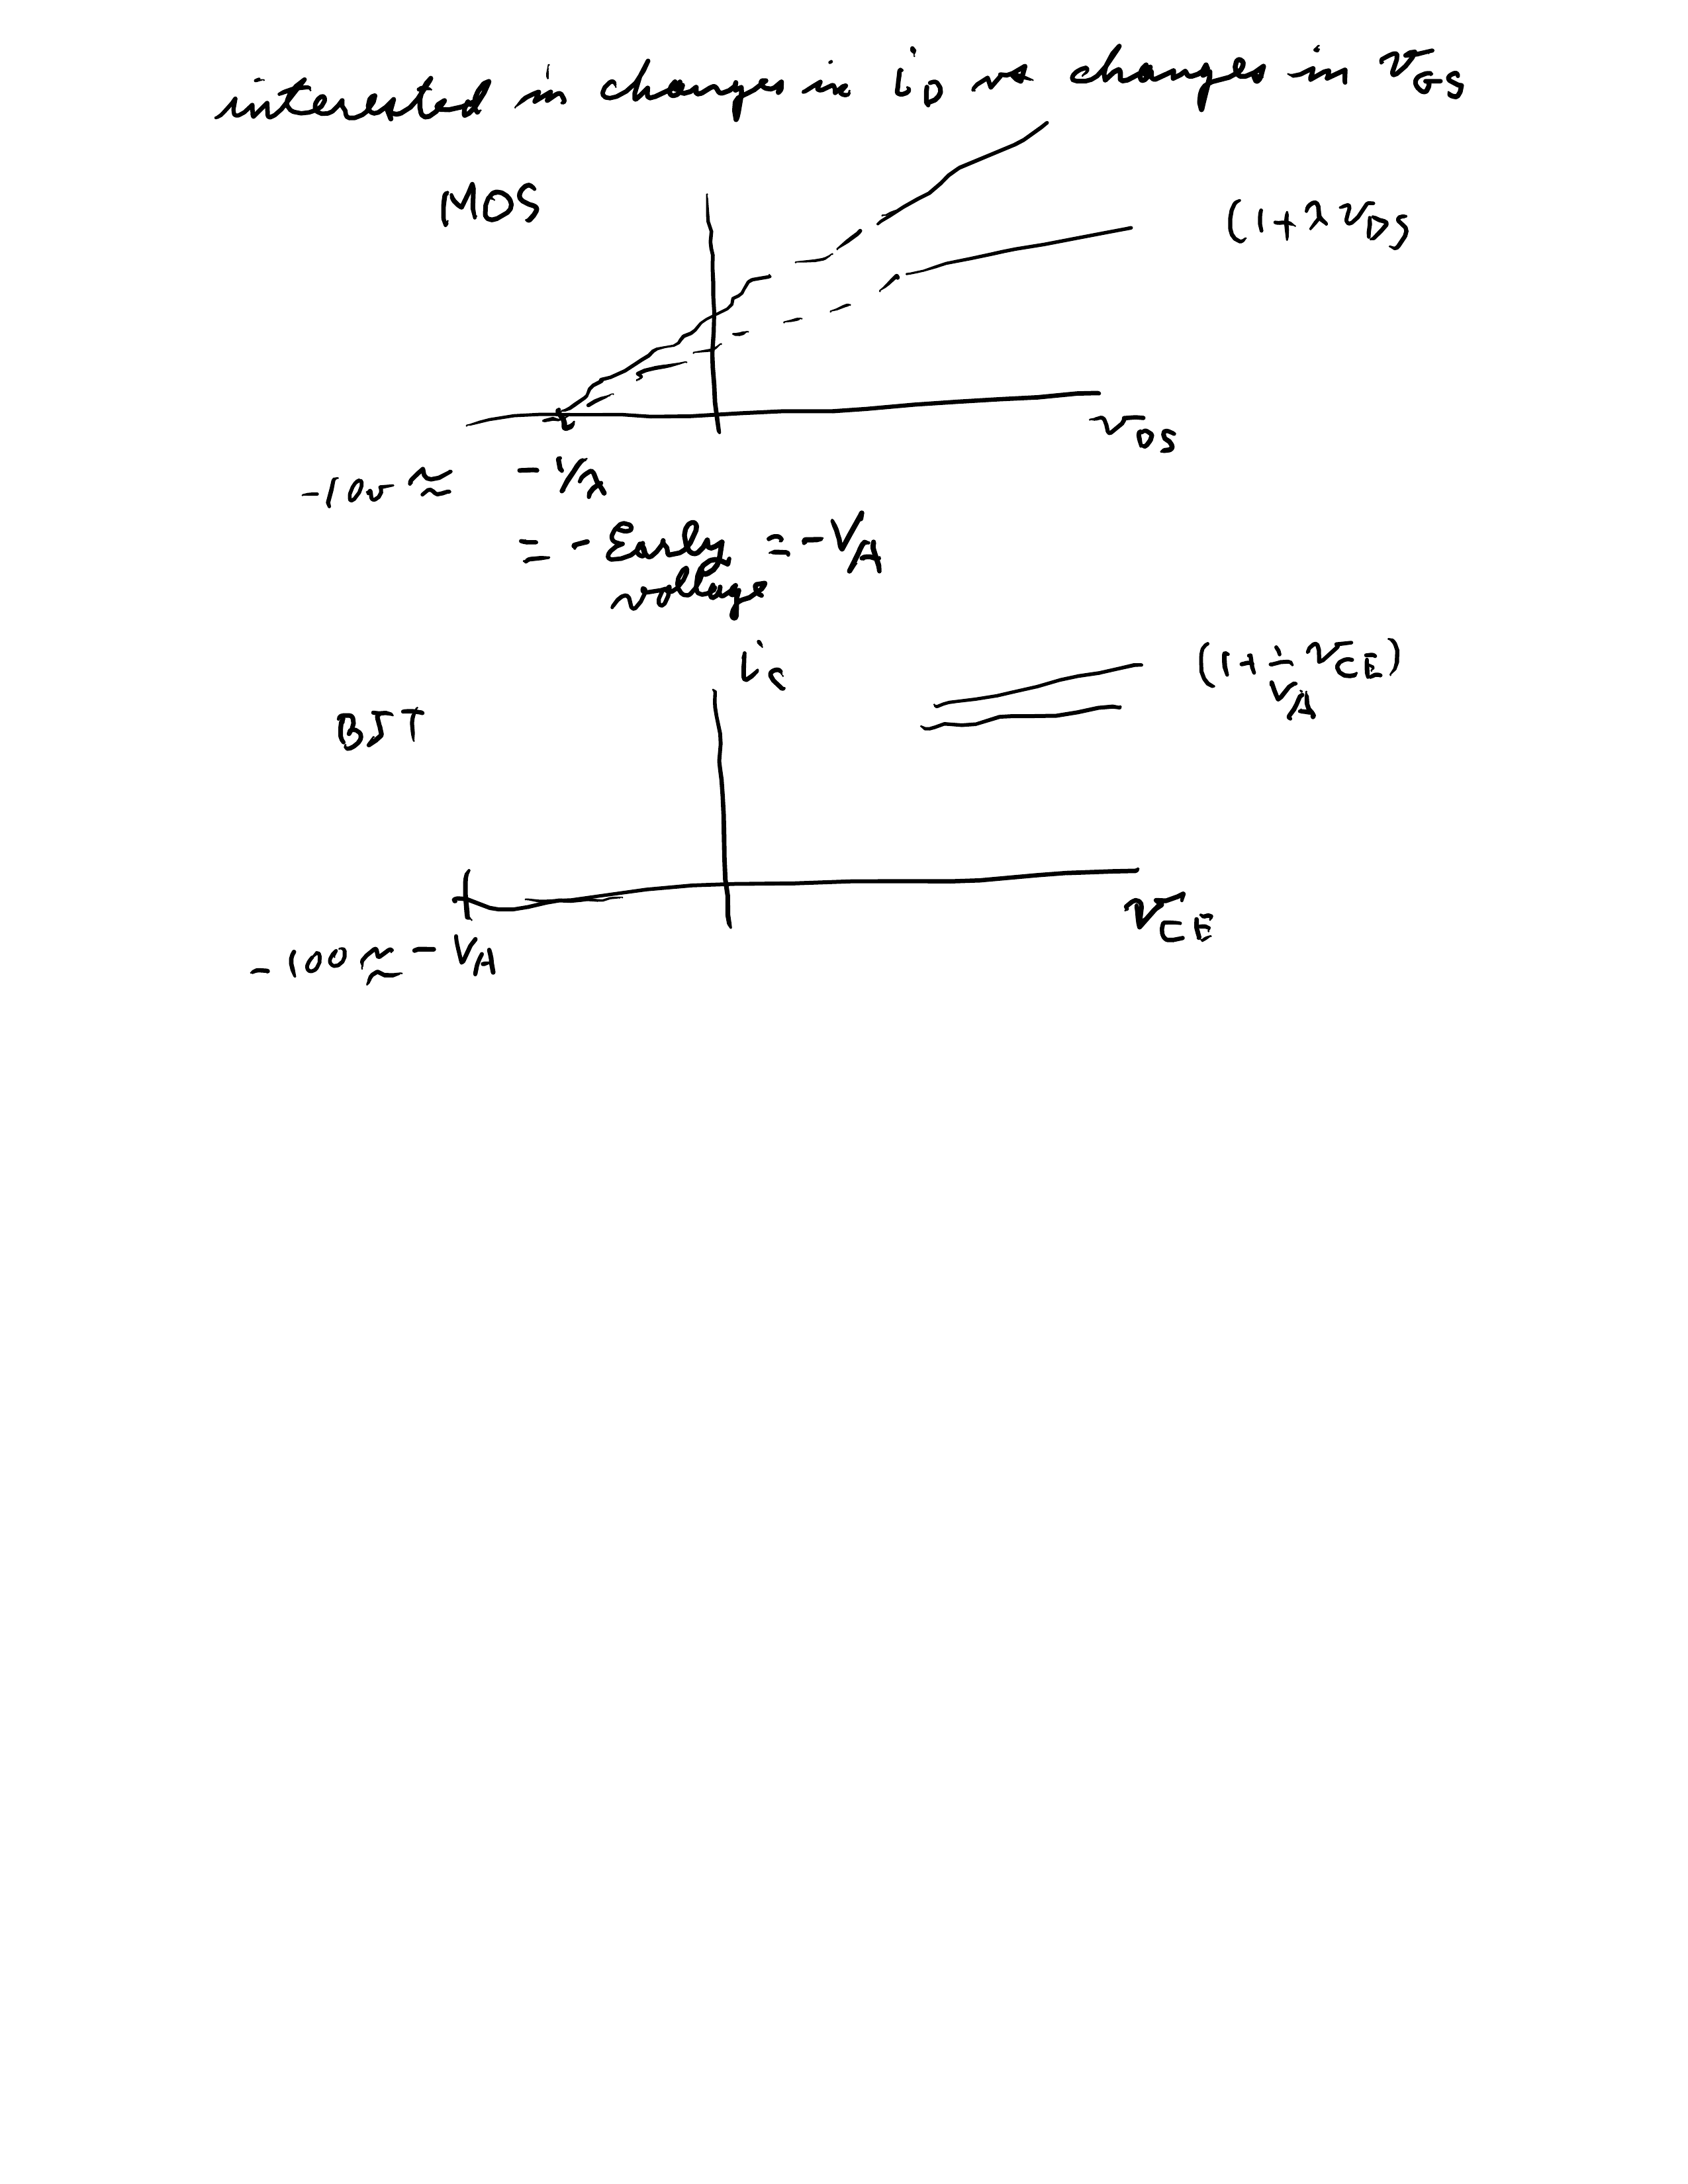 interested in changes in i_D vs changes in v_GS
MOS
(1+λv_DS
v_DS
-10v ≈ -1/λ
= -Early = -V_A
voltage
i_C
(1+ 1/V_A v_CE)
BJT
v_CE
-100 ≈ -V_A